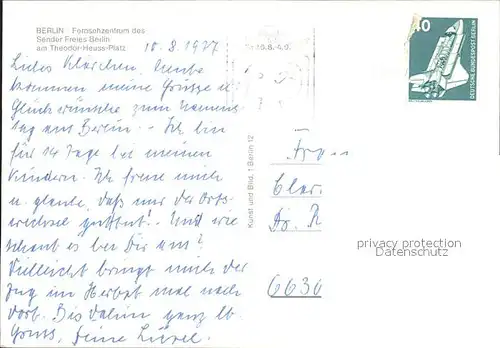 BERLIN Fernsehzentrum des
Sender Freies Berlin
am Theodor-Heuss-Platz
10.8.1977
Liebes Klärchen, heute
kommen meine Grüsse u.
Glückwünsche zum Namens
tag aus Berlin. - Ich bin
für 14 Tage bei meinen
Kindern. Ich freue mich
u. glaube, daß mir der Orts-
wechsel guttut! - Und wie
schaut es bei Dir aus?
Vielleicht bringt mich der
Zug im Herbst mal nach
dort. Bis dahin ganz lb.
Gruss, Deine
Kunst und Bild, 1 Berlin 12
40
DEUTSCHE BUNDESPOST BERLIN
Frau
Clar
Dr. R
6630
privacy protection
Datenschutz